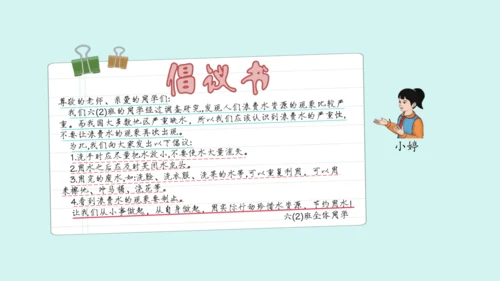 倡议书
尊敬的老师、亲爱的同学们:
我们六(2)班的同学经过调查研究,发现人们浪费水资源的现象比较严
重。而我国大多数地区严重缺水,所以我们应该认识到浪费水的严重性,
不要让浪费水的现象再次出现。
为此,我们向大家发出以下倡议:
1.洗手时应尽量把水放小,不要使水大量流失。
2.用水之后应及时关闭水龙头。
3.用完的废水,如:洗脸、洗衣服、洗菜的水等,可以重复利用,可以用
来擦地、冲马桶、浇花等。
4.看到浪费水的现象要制止。
让我们从小事做起,从自身做起,用实际行动珍惜水资源,节约用水!
六(2)班全体同学
小婷